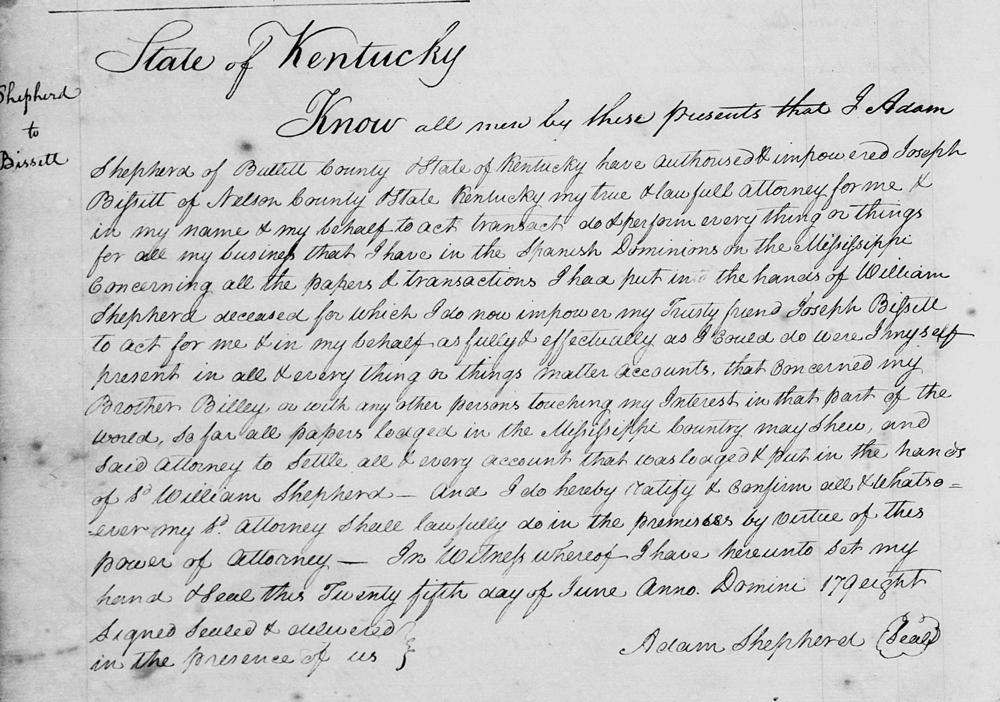 State of Kentucky
Shepherd
to
Bissett
Know all men by these presents that I Adam
Shepherd of Bullitt County & State of Kentucky have authorised & impowered Joseph
Bissitt of Nelson County & State Kentucky my true & lawfull attorney for me &
in my name & my behalf to act transact do & perform every thing or things
for all my business that I have in the Spanish Dominions on the Mississippi
Concerning all the papers & transactions I had put into the hands of William
Shepherd deceased for which I do now impower my Trusty friend Joseph Bissitt
to act for me & in my behalf as fully & effectually as I could do were I myself
present in all & every thing or things matter accounts, that concerned my
Brother Billey or with any other persons touching my Interest in that part of the
world, so far all papers lodged in the Mississippi Country may Shew, and
said attorney to Settle all & every account that was lodged & put in the hands
of sd William Shepherd — And I do hereby ratify & confirm all & whatso=
-ever my sd. attorney Shall lawfully do in the premises by virtue of this
power of attorney — In Witness whereof I have hereunto set my
hand & Seal this Twenty fifth day of June Anno. Domini 179eight
Signed Sealed & delivered }
in the presence of us
Adam Shepherd (Seal)